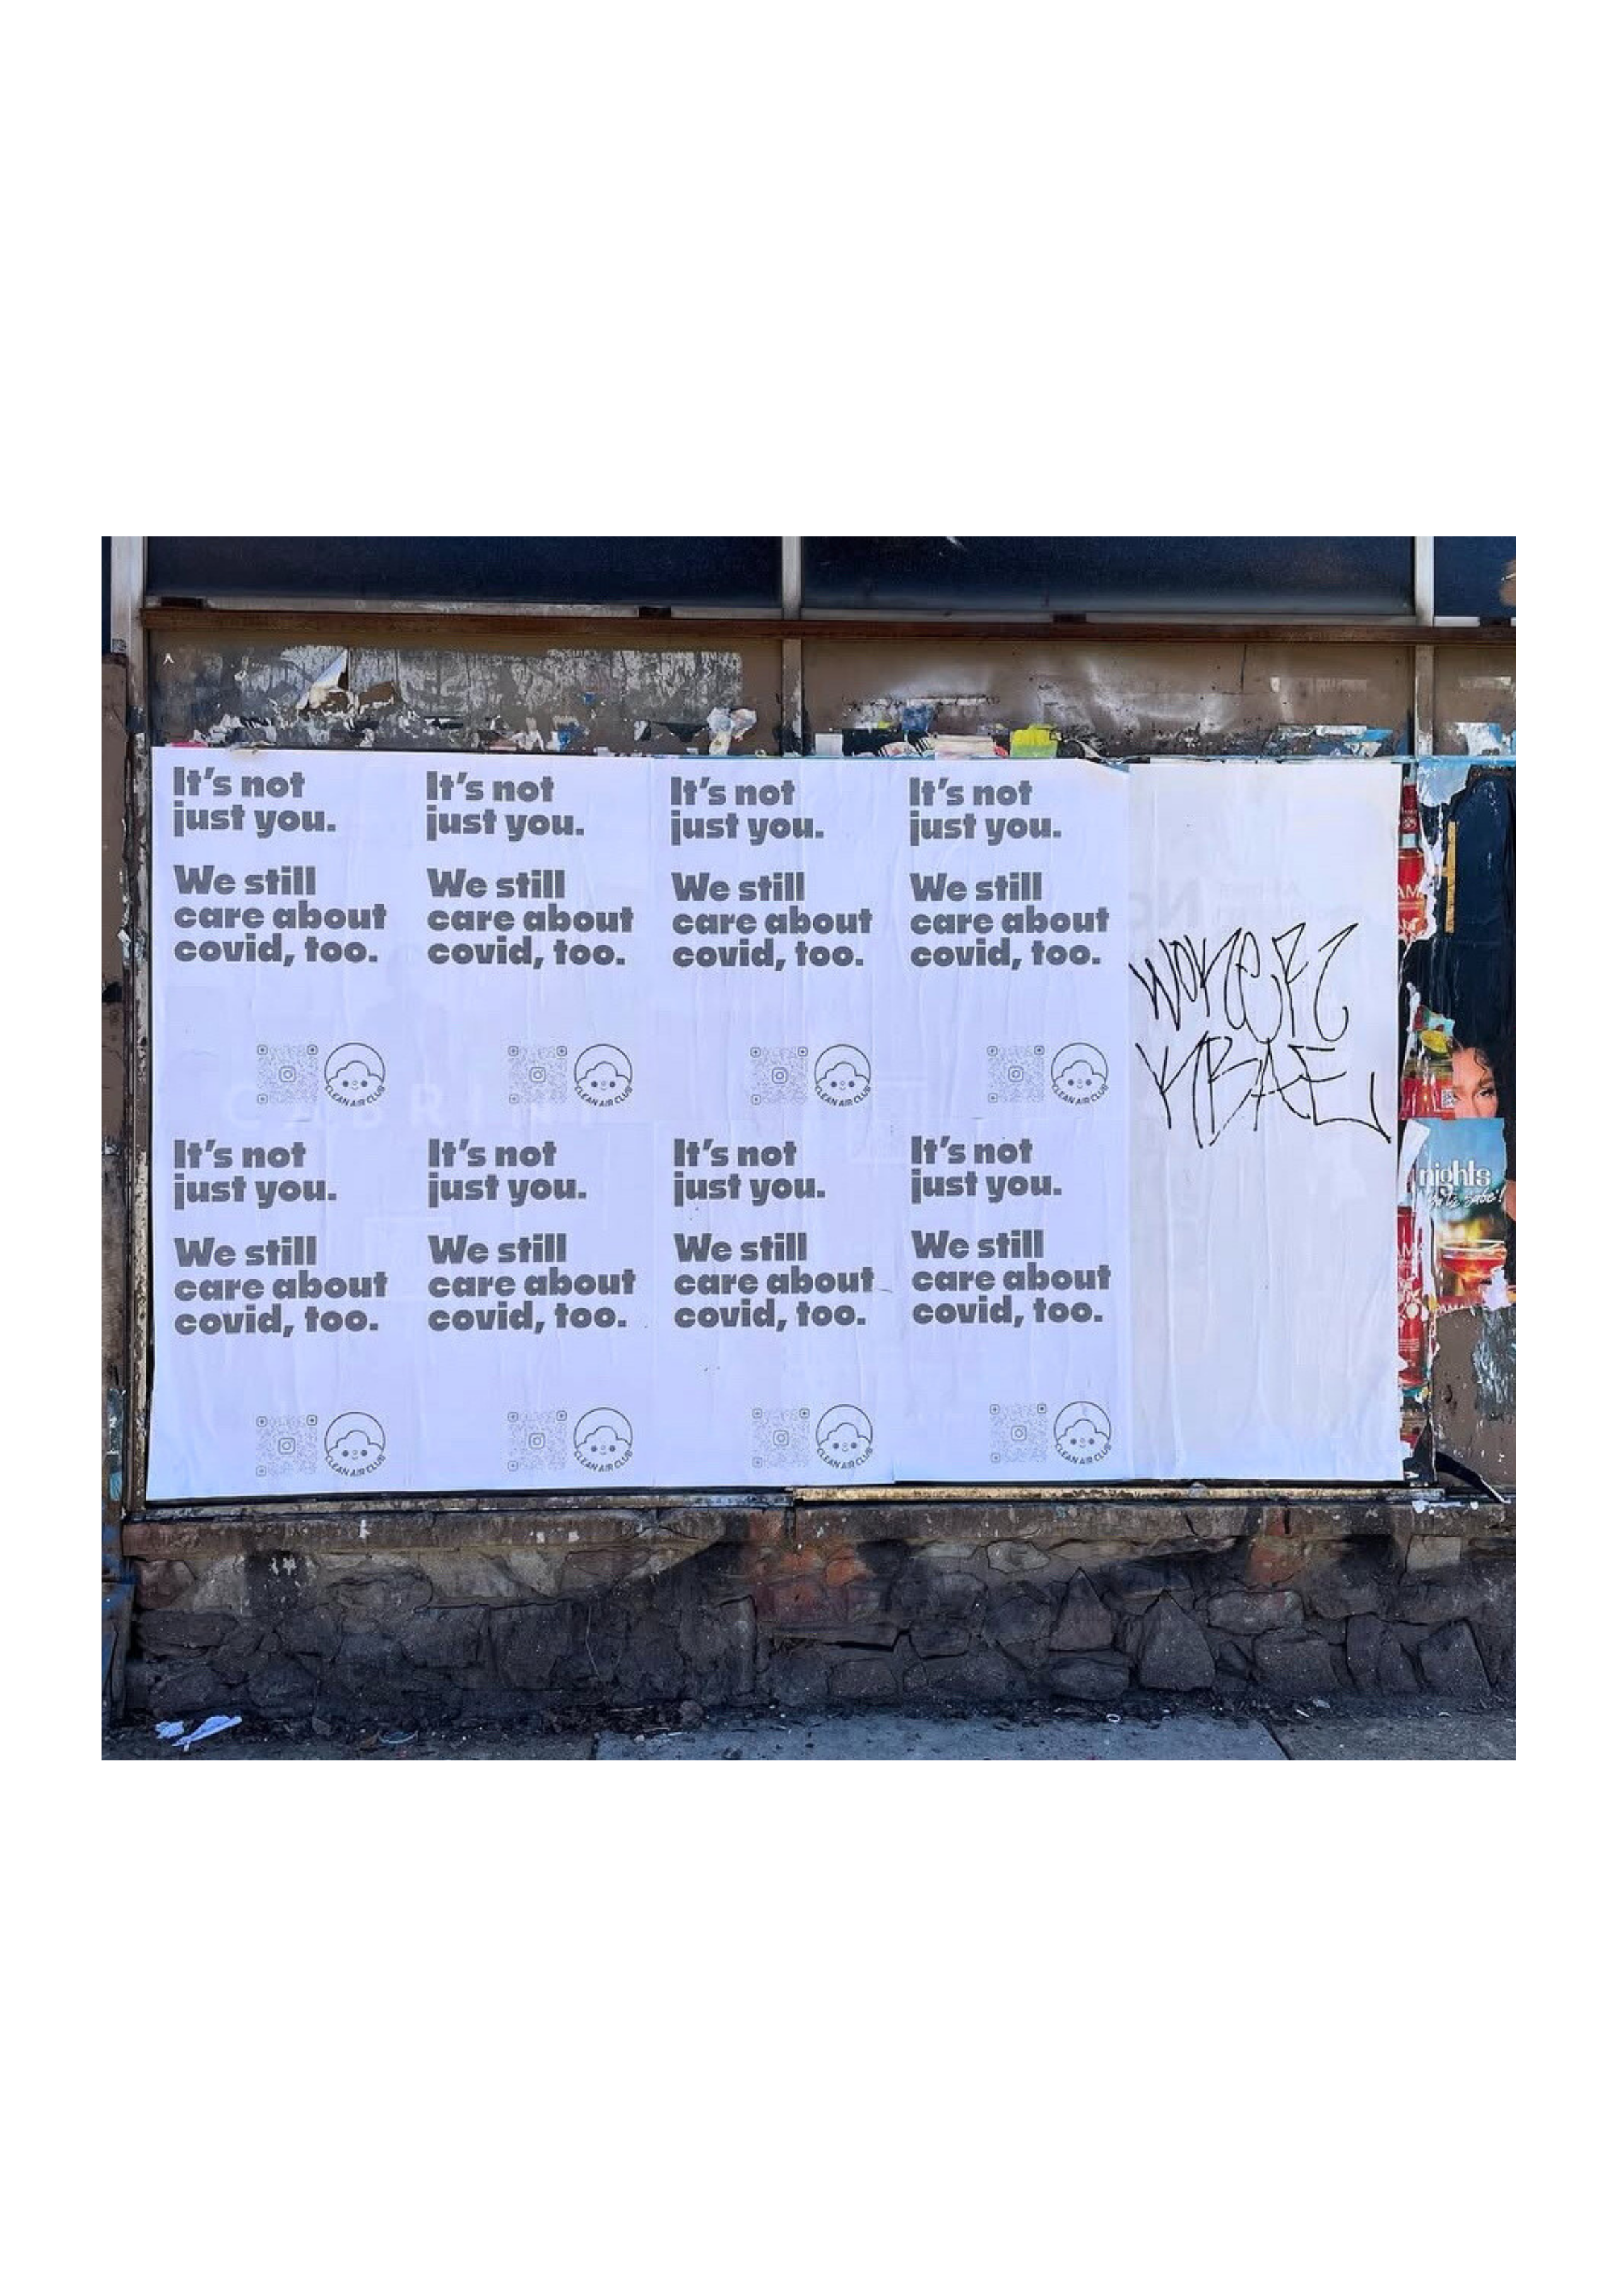 It's not
just you.
We still
care about
covid, too.
CLEAN AIR CLUB
It's not
just you.
We still
care about
covid, too.
CLEAN AIR CLUB
It's not
just you.
We still
care about
covid, too.
CLEAN AIR CLUB
It's not
just you.
We still
care about
covid, too.
CLEAN AIR CLUB
It's not
just you.
We still
care about
covid, too.
CLEAN AIR CLUB
It's not
just you.
We still
care about
covid, too.
CLEAN AIR CLUB
It's not
just you.
We still
care about
covid, too.
CLEAN AIR CLUB
It's not
just you.
We still
care about
covid, too.
CLEAN AIR CLUB
nights